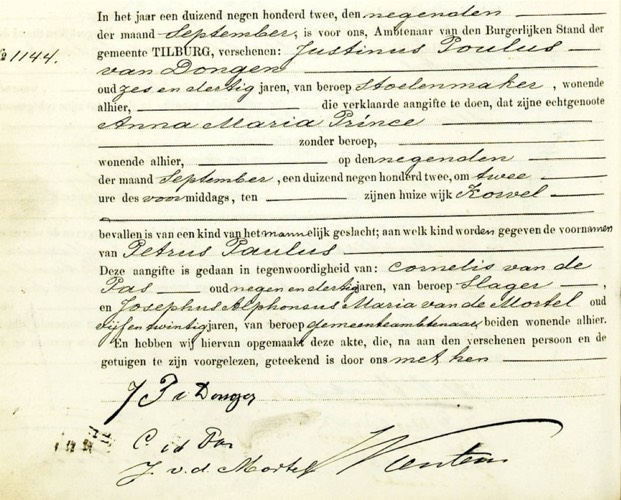 In het jaar een duizend negen honderd twee, den negenden
der maand September, is voor ons, Ambtenaar van den Burgerlijken Stand der
gemeente TILBURG, verschenen: Justinus Poulus
No 1144.
van Dongen
oud zes en dertig jaren, van beroep Stoelenmaker, wonende
alhier, die verklaarde aangifte te doen, dat zijne echtgenoote
Anna Maria Prince
zonder beroep,
wonende alhier, op den negenden
der maand September, een duizend negen honderd twee, om twee
ure des voormiddags, ten zijnen huize wijk Korvel
bevallen is van een kind van het mannelijk geslacht; aan welk kind worden gegeven de voornamen
van Petrus Paulus
Deze aangifte is gedaan in tegenwoordigheid van: Cornelis van de
Pas oud negen en dertig jaren, van beroep Slager,
en Josephus Alphonsus Maria van de Mortel oud
vijf en twintig jaren, van beroep gemeenteambtenaar, beiden wonende alhier.
En hebben wij hiervan opgemaakt deze akte, die, na aan den verschenen persoon en de
getuigen te zijn voorgelezen, geteekend is door ons met hen
J P v Dongen
C. v d Pas
J. v. d. Mortel